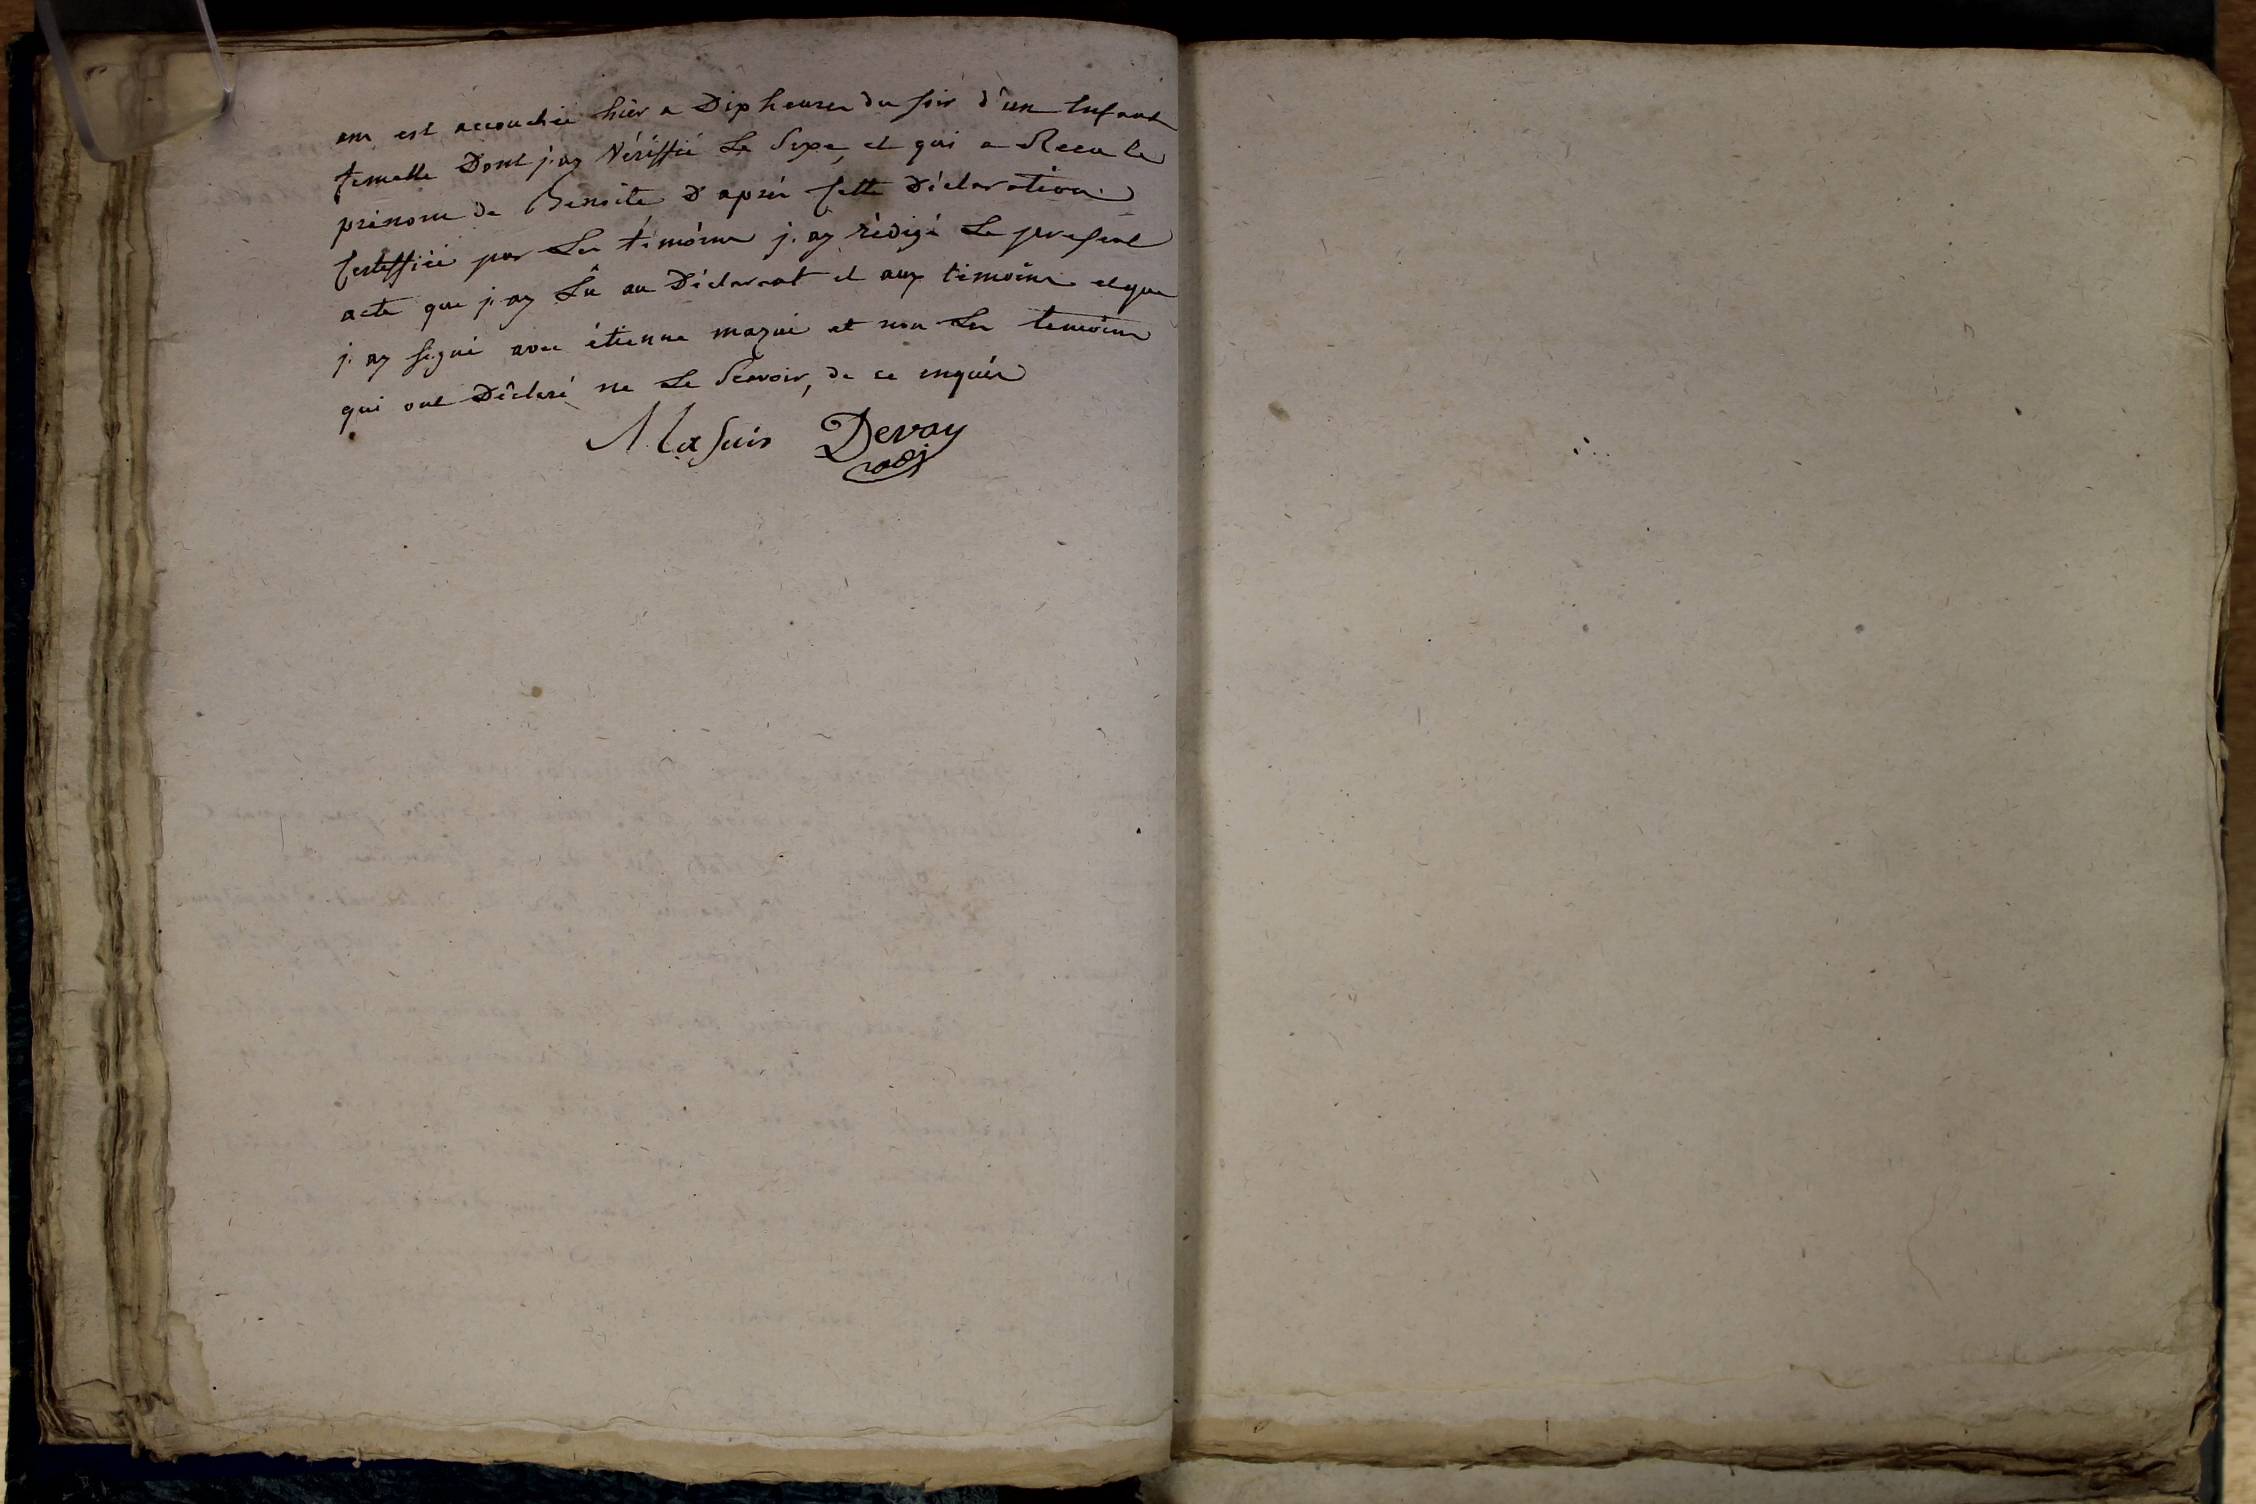 ans est accouchée hier a Dix heures du soir d'un Enfant
femelle Dont j'ay Vériffié Le Sexe, et qui a Recu le
prénom de Benoite D'après Cette Déclaration
Certiffiée par Les témoins j'ay rédigé Le present
acte que j'ay Lû au Déclarant et aux témoins et que
j'ay signé avec étienne mazui et non Les temoins
qui ont Déclaré ne Le Scavoir, de ce enquis
Masuis Devay
adj